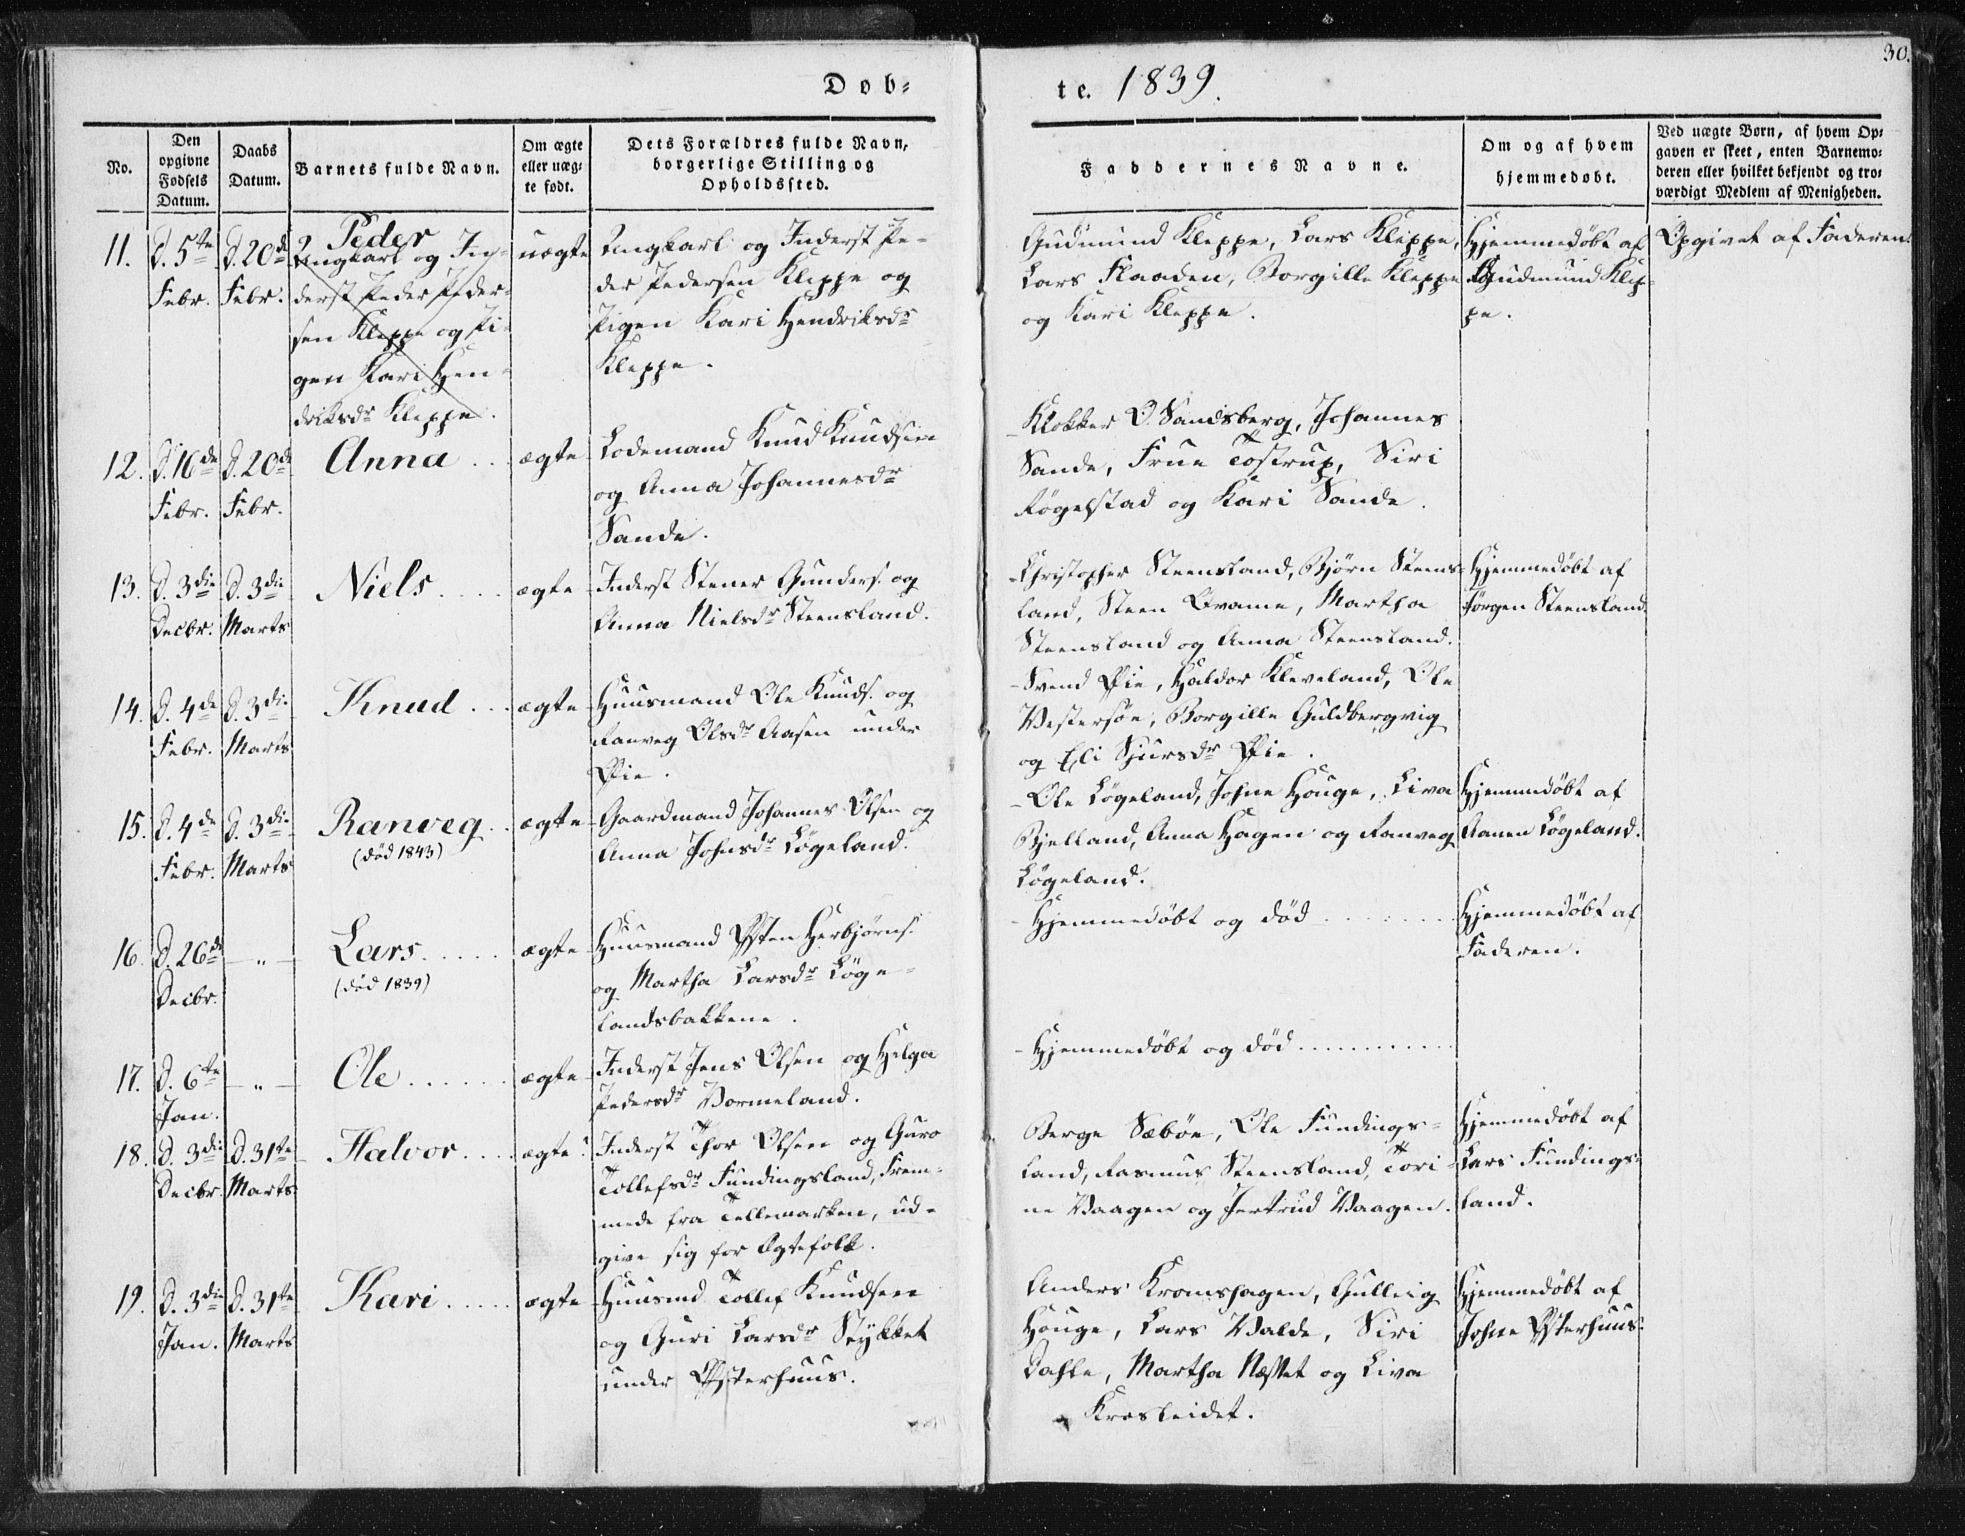 30.
Døb-
te. 1839.
No.
Den opgivne Fødsels Datum.
Daabs Datum.
Barnets fulde Navn.
Om ægte eller uægte født.
Dets Forældres fulde Navn, borgerlige Stilling og Opholdssted.
Faddernes Navne.
Om og af hvem hjemmedøbt.
Ved uægte Børn, af hvem Opgaven er skeet, enten Barnemoderen eller hvilket bekjendt og troværdigt Medlem af Menigheden.
11.
D. 5te
Febr.
D. 20de
Febr.
Peder
Ungkarl og In-
derst Peder Peder-
sen Kleppe og Pi-
gen Kari Hen-
driksdr Kleppe.
uægte
Ungkarl og Inderst Pe-
der Pedersen Kleppe og
Pigen Kari Hendriksdr
Kleppe.
Gudmund Kleppe, Lars Kleppe,
Lars Flaaden, Borgille Kleppe
og Kari Kleppe.
Hjemmedøbt af
Gudmund Klep-
pe.
Opgivet af Faderen.
12.
D. 16de
Febr.
D. 20de
Febr.
Anna
ægte
Lodsmand Knud Knudsen
og Anna Johannesdr
Sande.
Klokker O. Sandsberg, Johannes
Sande, Frue Tostrup, Siri
Røgelstad og Kari Sande.
13.
D. 3die
Decbr.
D. 3die
Marts
Niels
ægte
Inderst Stener Gunders. og
Anna Nielsdr Steensland.
Christopher Steensland, Bjørn Steens-
land, Steen Qvame, Martha
Steensland og Anna Steensland.
Hjemmedøbt af
Jørgen Steensland.
14.
D. 4de
Febr.
D. 3die
Marts
Knud
ægte
Huusmand Ole Knuds. og
Ranveg Olsdr Aasen under
Øie.
Svend Øie, Haldor Kleveland, Ole
Vestersøe, Borgille Guldbergvig
og Eli Sjursdr Øie.
15.
D. 4de
Febr.
D. 3die
Marts
Ranveg
(død 1843)
ægte
Gaardmand Johannes Olsen og
Anna Johnsdr Løgeland.
Ole Løgeland, Johne Houge, Liva
Bjelland, Anna Hagen og Ranveg
Løgeland.
Hjemmedøbt af
Aanen Løgeland.
16.
D. 26de
Decbr.
— „ —
Lars
(død 1839)
ægte
Huusmand Østen Herbjørns.
og Martha Larsdr Løge-
landsbakkene.
Hjemmedøbt og død
Hjemmedøbt af
Faderen.
17.
D. 6te
Jan.
— „ —
Ole
ægte
Inderst Jens Olsen og Helga
Pedersdr Vormeland.
Hjemmedøbt og død
18.
D. 3die
Decbr.
D. 31te
Marts
Halvor
ægte?
Inderst Thor Olsen og Guro
Tollefsdr Fundingsland, Frem-
mede fra Tellemarken, ud-
give sig for Ægtefolk.
Berge Sæbøe, Ole Fundings-
land, Rasmus Steensland, Tori-
ne Vaagen og Jertrud Vaagen.
Hjemmedøbt af
Lars Fundings-
land.
19.
D. 3die
Jan.
D. 31te
Marts
Kari
ægte
Huusmd Tollef Knudsen
og Guri Larsdr Stykket
under Østerhuus.
Anders Kromshagen, Gulleig
Houge, Lars Valde, Siri
Dahle, Martha Næsset og Liva
Krosleidet.
Hjemmedøbt af
Johne Østerhuus.